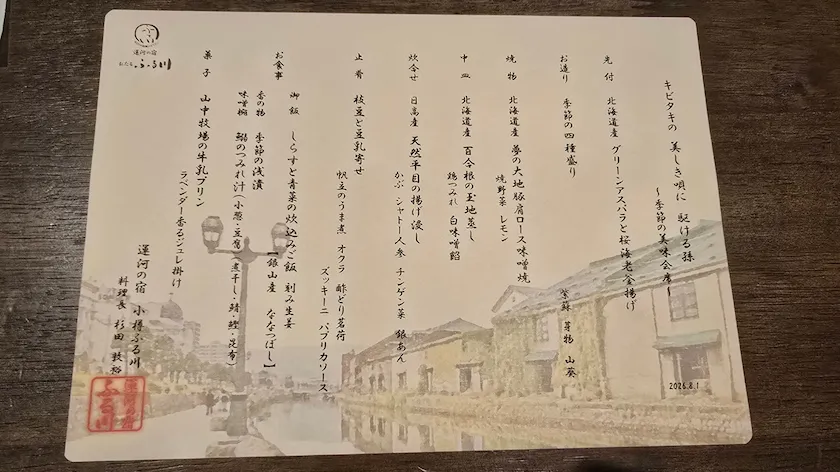 キビタキの 美しき唄に 駆ける孫
～季節の美味会席～
先付 北海道産 グリーンアスパラと桜海老釜揚げ
お造り 季節の四種盛り
紫蘇 芽物 山葵
焼物 北海道産 夢の大地豚肩ロース味噌焼
焼野菜 レモン
中皿 北海道産 百合根の玉地蒸し
鶏つみれ 白味噌餡
炊合せ 日高産 天然平目の揚げ浸し
かぶ シャトー人参 チンゲン菜 銀あん
止肴 枝豆と豆乳寄せ
帆立のうま煮 オクラ 酢どり茗荷
ズッキーニ パプリカソース
お食事
御飯 しらすと青菜の炊込みご飯 刻み生姜
【銀山産 ななつぼし】
香の物 季節の浅漬
味噌椀 鰯のつみれ汁(小葱・豆腐)(煮干し・鯖・鰹・昆布)
菓子 山中牧場の牛乳プリン
ラベンダー香るジュレ掛け
運河の宿 小樽ふる川
料理長 杉田
2026.8.1
運河の宿
おたる ふる川
運河の宿
ふる川